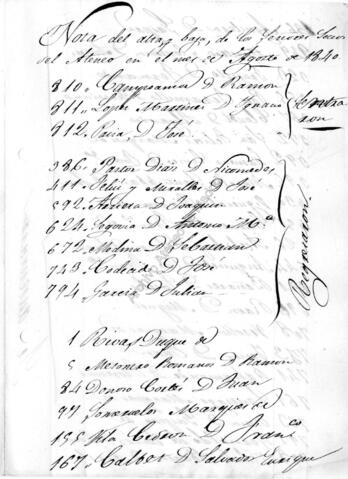 Nota del alta y baja, de los Señores Socios
del Ateneo en el mes de Agosto de 1840
810, Campoamor D. Ramon
811, Lopez Martinez D. Ignacio
Entra
ron
812, Paria, D. José
386, Pastor Diaz D. Nicomedes
411, Feliú y Miralles D. José
592, Herrera D. Joaquin
624, Segovia D. Antonio Mª
672, Medina D. Sebastian
743, D. José
794, Garcia D. Julian
Regresaron
1 Rivas, Duque de
5 Mesonero Romanos D. Ramon
84 Donoso Cortés D. Juan
97 Marques de
155 Vila D. Franco
167, Calvet D. Salvador Enrique